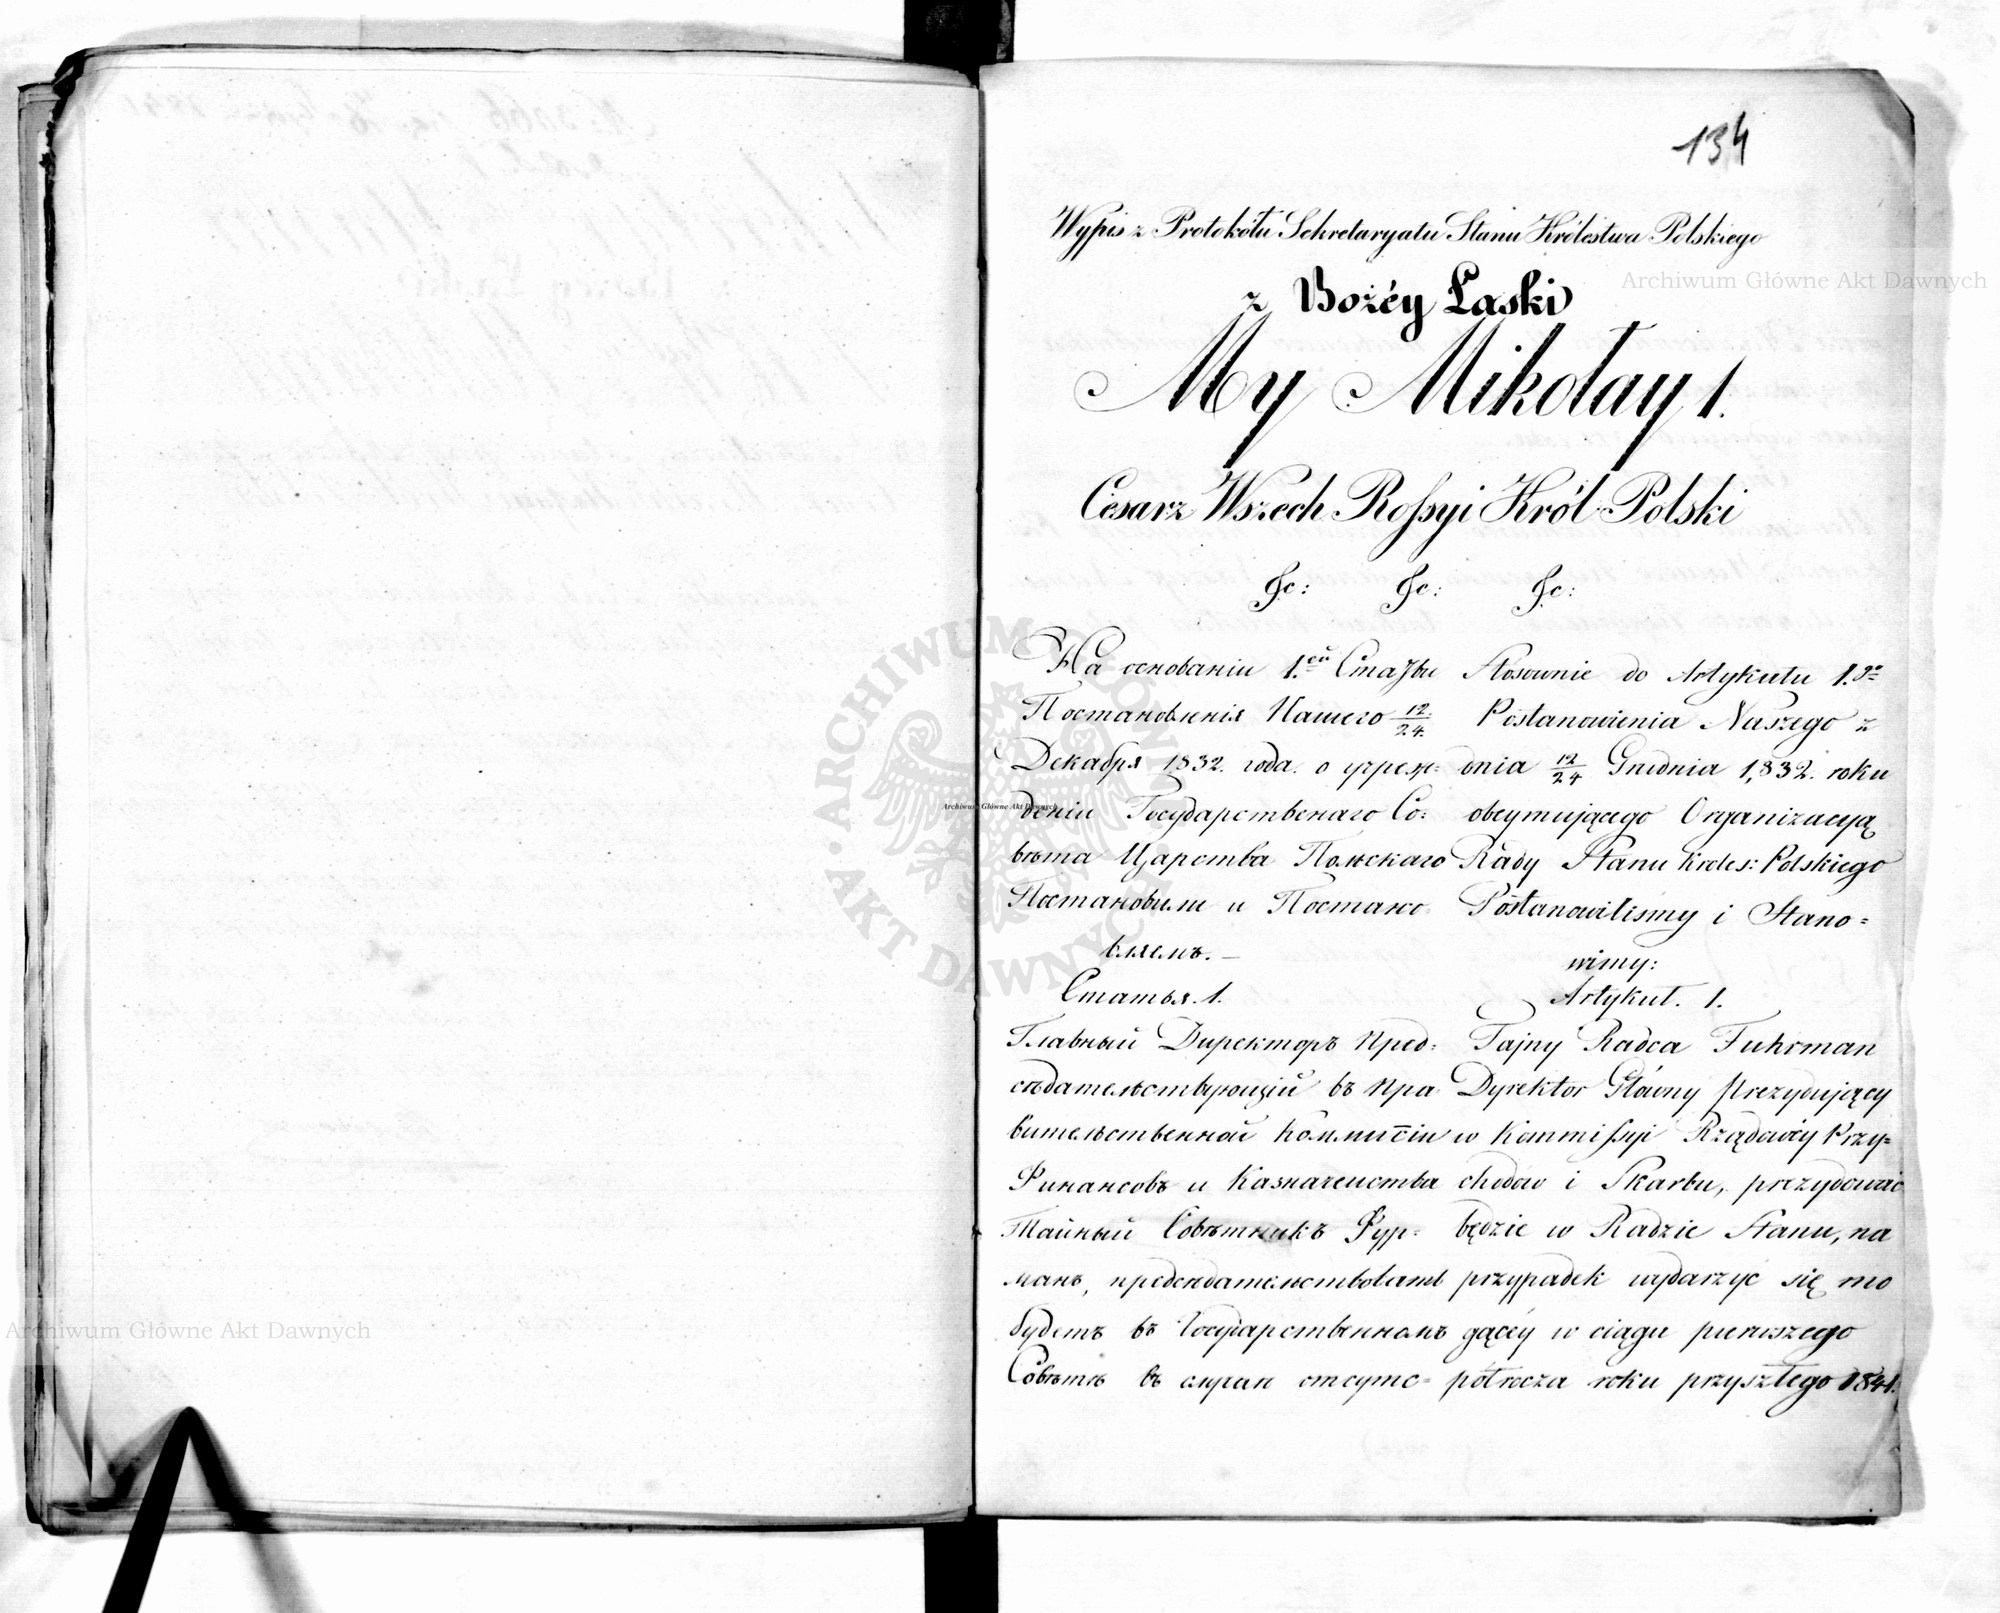 134
Wypis z Protokółu Sekretaryatu Stanu Królestwa Polskiego
z Bożéy Łaski
My Mikołay 1.
Cesarz Wszech Rossyi Król Polski
&c: &c: &c:
На основаніи 1.ей Статьи
Постановленія Нашего 12/24.
Декабря 1832. года. о учреж=
деніи Государственаго Со=
вѣта Царства Польскаго
Постановили и Постано
вляемъ. —
Статья. 1.
Главный Директоръ Пред=
сѣдательствующій въ Пра
вительственной Коммисіи
Финансовъ и Казначейства
Тайный Совѣтникъ Фур=
манъ, предсѣдательствовать
будетъ въ Государственномъ
Совѣтѣ въ случаи отсутс=
Stosownie do Artykułu 1.go
Postanowienia Naszego z
dnia 12/24 Grudnia 1,832. roku
obeymującego Organizacyą
Rady Stanu Kròles: Polskiego
Postanowiliśmy i Stano=
wimy:
Artykuł. 1.
Tajny Radca Fuhrman
Dyrektor Główny Prezydujący
w Kommissyi Rządowéy Przy=
chodów i Skarbu, prezydować
będzie w Radzie Stanu, na
przypadek wydarzyć się mo
gącéy w ciągu pierwszego
półrocza roku przyszłego 1841.
Archiwum Główne Akt Dawnych
Archiwum Główne Akt Dawnych
Archiwum Główne Akt Dawnych
ARCHIWUM GŁÓWNE AKT DAWNYCH